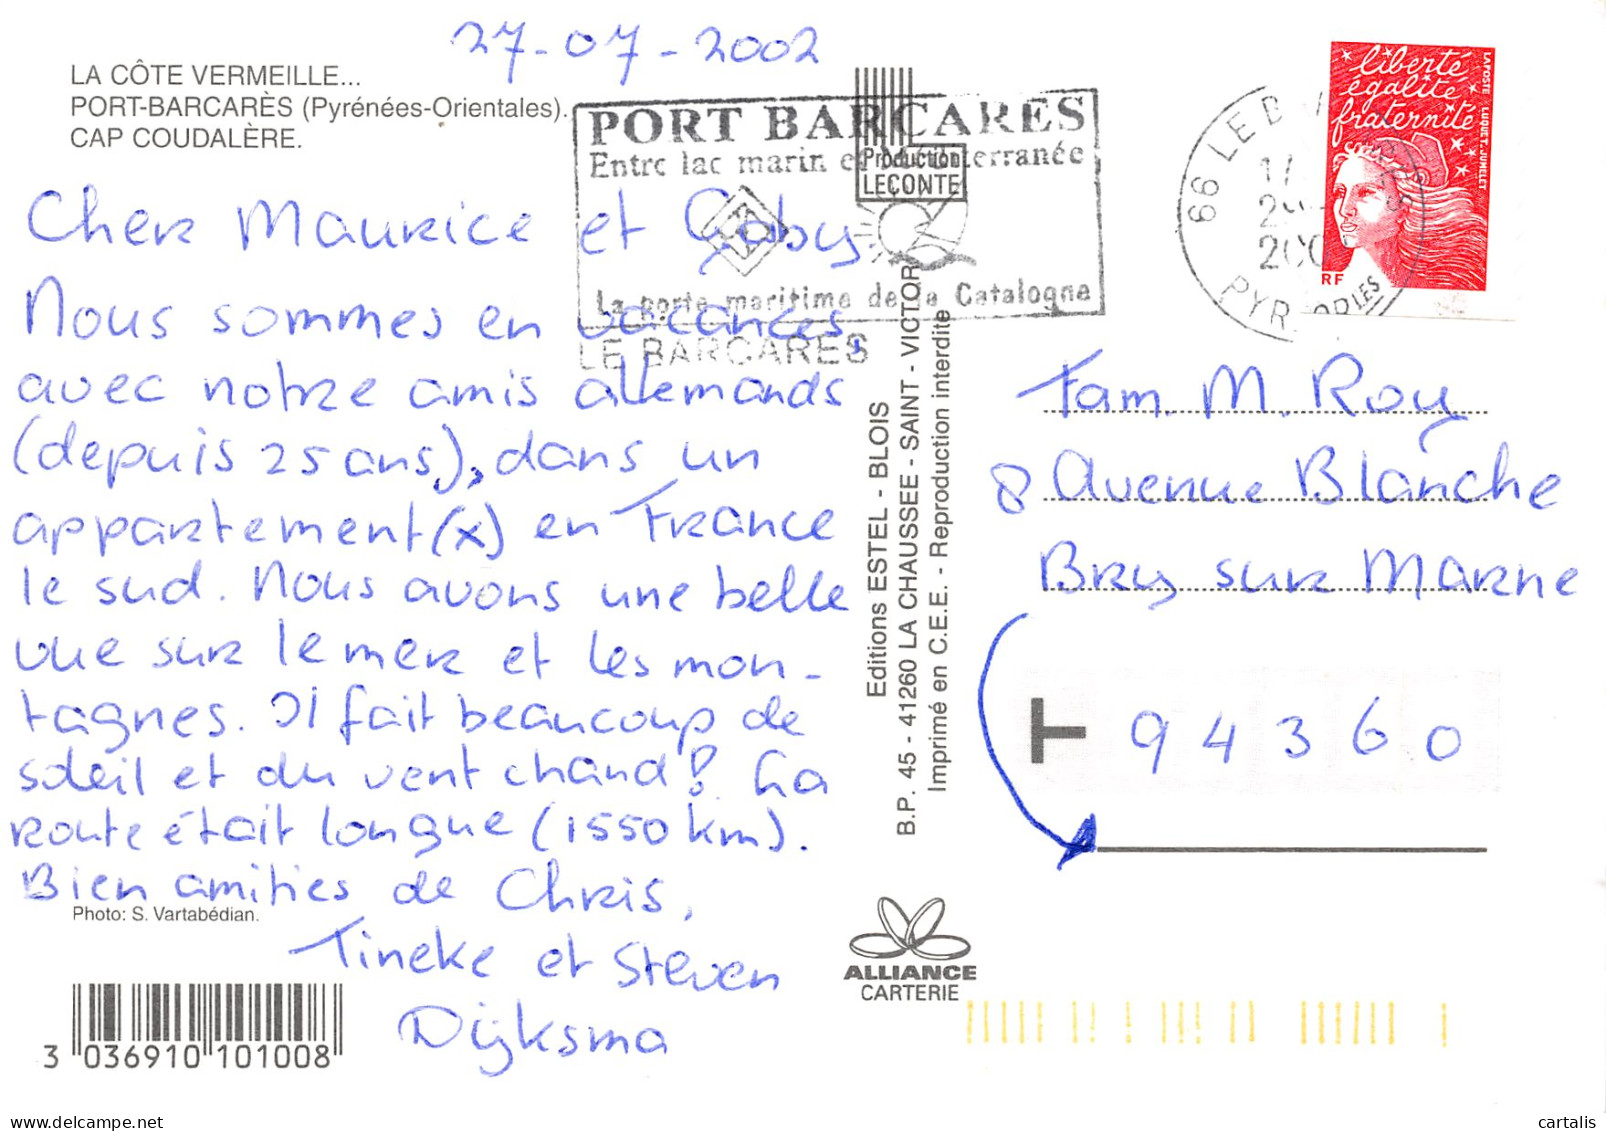 27-07-2002
LA CÔTE VERMEILLE...
PORT-BARCARÈS (Pyrénées-Orientales).
CAP COUDALÈRE.
PORT BARCARES
Entre lac marin et Méditerranée
La porte maritime de la Catalogne
LE BARCARES
Production
LECONTE
66 LE B
2002
PYR. ORLES
liberté
égalité
fraternité
LA POSTE LUQUET. JUMELET
RF
Cher Maurice et Gaby
Nous sommes en vacances,
avec notre amis allemands
(depuis 25 ans), dans un
appartement(x) en France
le sud. Nous avons une belle
vue sur le mer et les mon-
tagnes. Il fait beaucoup de
soleil et du vent chaud! La
route était longue (1550 km).
Bien amities de Chris,
Tineke et Steven
Dijksma
Photo: S. Vartabédian.
3 036910 101008
Editions ESTEL - BLOIS
B.P. 45 - 41260 LA CHAUSSEE - SAINT - VICTOR
Imprimé en C.E.E. - Reproduction interdite
ALLIANCE
CARTERIE
Fam. M. Roy
8 Avenue Blanche
Bry sur Marne
94360
cartalis